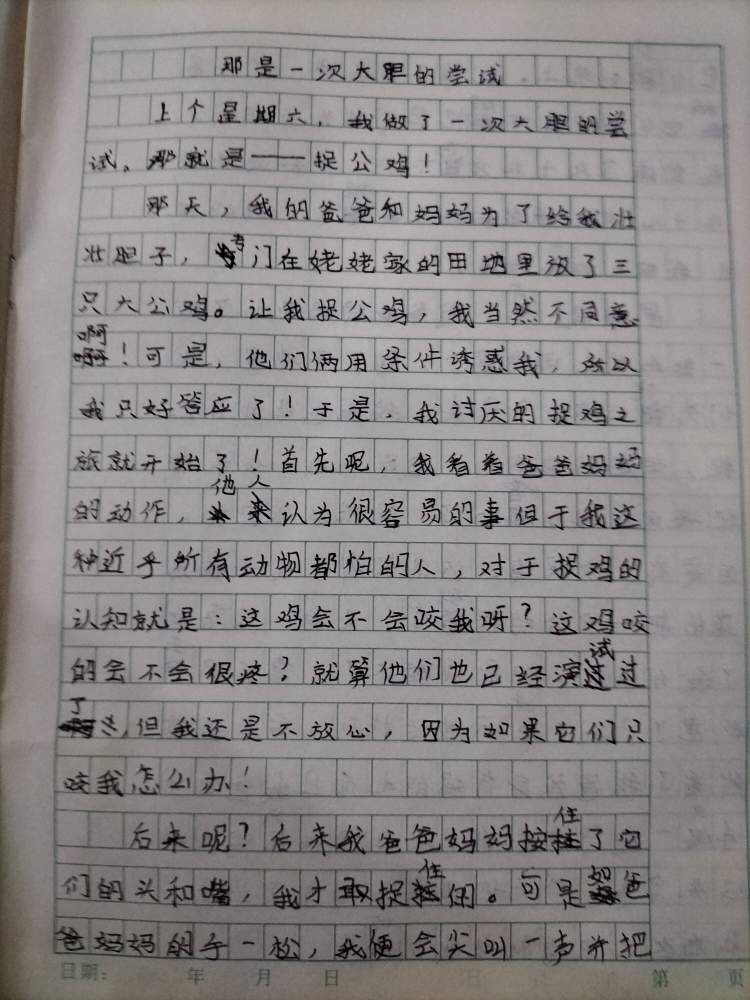 那是一次大胆的尝试。
上个星期六，我做了一次大胆的尝
试，那就是——捉公鸡！
那天，我的爸爸和妈妈为了给我壮
壮胆子，专门在姥姥家的田地里放了三
只大公鸡。让我捉公鸡，我当然不同意
啊！可是，他们俩用条件诱惑我，所以
我只好答应了！于是，我讨厌的捉鸡之
旅就开始了！首先呢，我看着爸爸妈妈
的动作，他人认为很容易的事但于我这
种近乎所有动物都怕的人，对于捉鸡的
认知就是：这鸡会不会咬我呀？这鸡咬
的会不会很疼？就算他们也已经演试过
了，但我还是不放心，因为如果它们只
咬我怎么办！
后来呢？后来我爸爸妈妈按住了它
们的头和嘴，我才敢捉住。可是如爸
爸妈妈的手一松，我便会尖叫一声并把
日期： 年 月 日 第 页